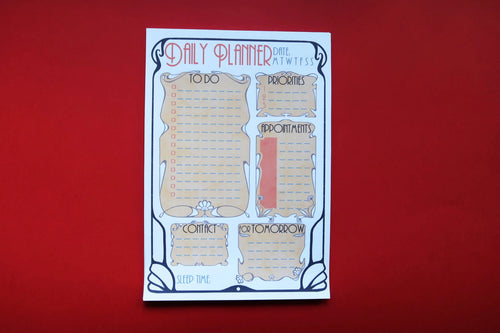 DAILY PLANNER
DATE
M T W T F S S
TO DO
PRIORITIES
APPOINTMENTS
CONTACT
FOR TOMORROW
SLEEP TIME